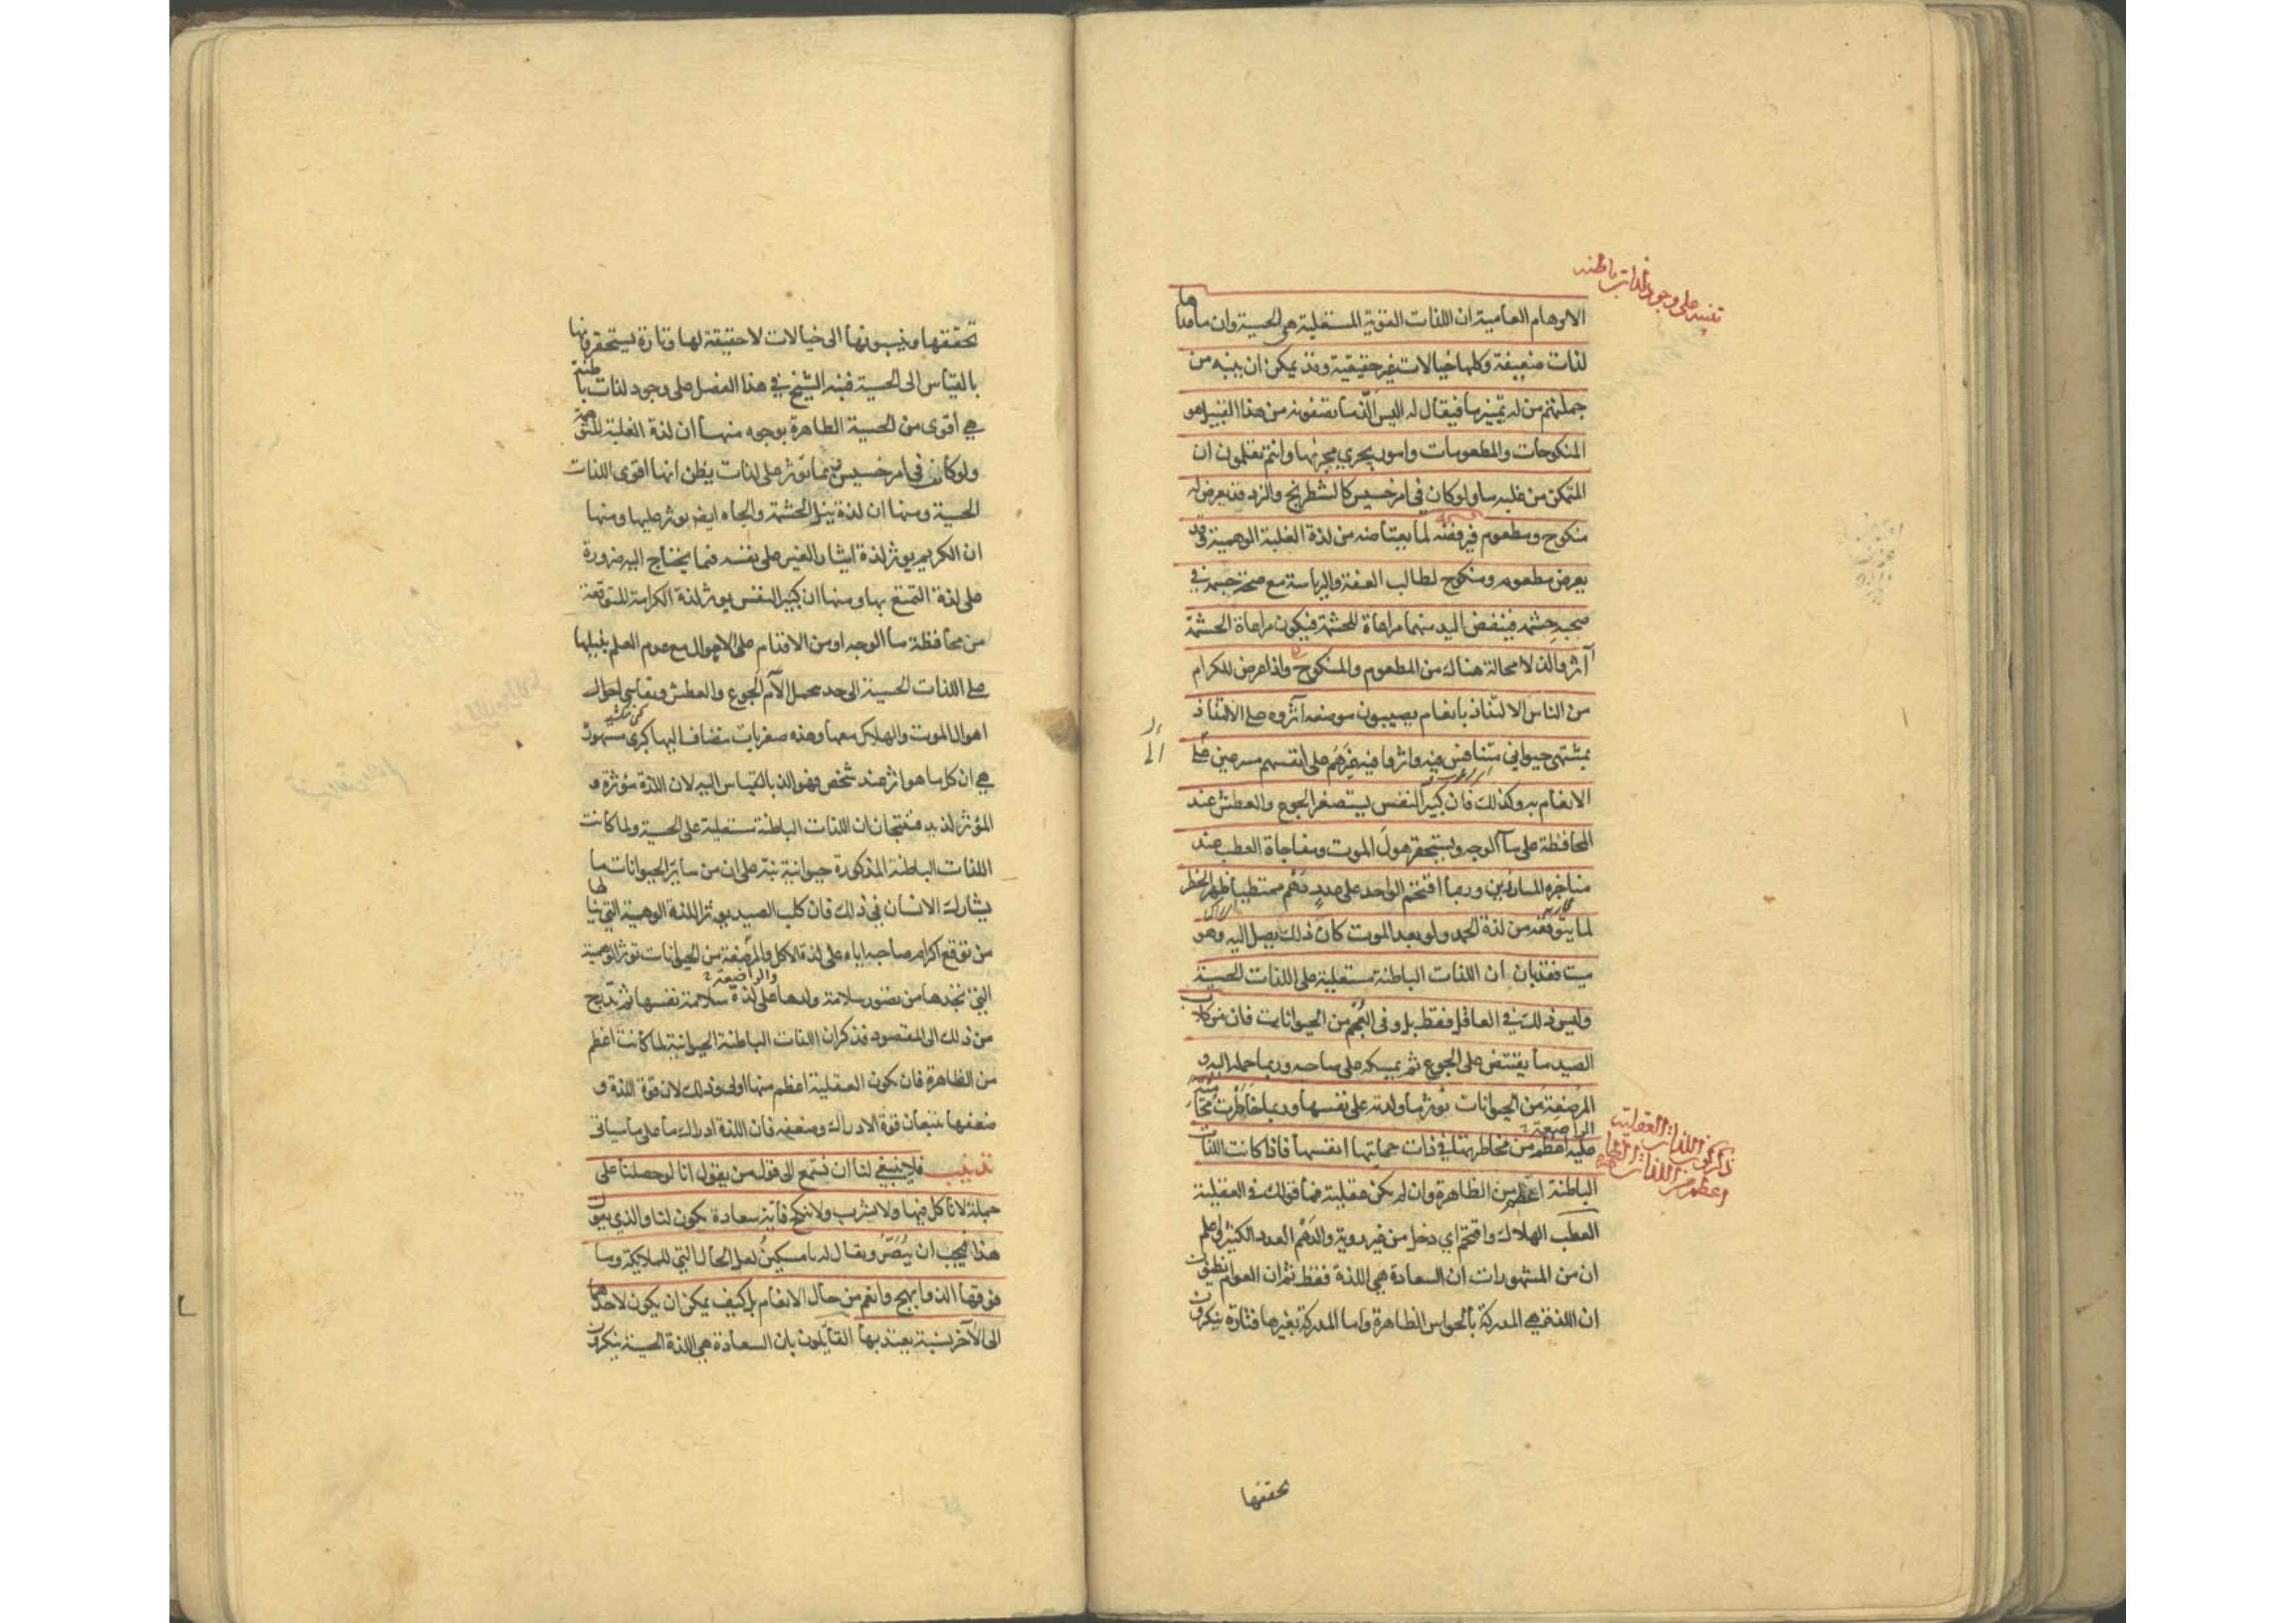 تنبيه على وجود لذات باطنه
الاوهام العامية ان اللذات القوية المستعلية هي الحسية وان ما عداها
لذات ضعيفة وكلها خيالات غير حقيقية وقد يمكن ان ينبه من
جملتهم من له تمييز ما فيقال له اليس الذ ما تصفونه من هذا القبيل هو
المنكوحات والمطعومات وامور يجري مجريها وانتم تعلمون ان
المتمكن من غلبه ما ولو كان في امر خسيس كالشطرنج والنرد قد يعرض له
منكوح ومطعوم فيرفضه لما يعتاضه من لذة الغلبة الوهمية وقد
يعرض مطعوم ومنكوح لطالب العفة والرياسة مع صحة جسمه في
صحبه حشمه فينفض اليد منهما مراعاة للحشمة فيكون مراعاة الحشمة
آثر والذ لا محالة هناك من المطعوم والمنكوح واذا عرض للكرام
من الناس الالتذاذ بانعام يصيبون موضعه آثروه على الالتذاذ
بمشتهى حيواني متنافس فيه واثروا فيه غيرهم على انفسهم مسرعين الى
الانعام به وكذلك فان كبير النفس يستصغر الجوع والعطش عند
المحافظة على ماء الوجه ويستحقر هول الموت ومفاجاة العطب عند
مناجزه المبارزين وربما اقتحم الواحد على عدد دهم ممتطيا ظهر الخطر
لما يتوقعه من لذة الحمد ولو بعد الموت كان ذلك يصل اليه وهو
ميت فقد بان ان اللذات الباطنة مستعلية على اللذات الحسية
وليس ذلك في العاقل فقط بل وفى العجم من الحيوانات فان من كلاب
الصيد ما يقتنص على الجوع ثم يمسكه على صاحبه وربما حمله اليه و
المرضعة من الحيوانات توثر ما ولدته على نفسها وربما خاطرت محامية
الراضعة
عليه اعظم من مخاطرتها في ذات حمايتها انفسها فاذا كانت اللذات
ذكر ان اللذات العقلية
اعظم من اللذات
الباطنة اعظم من الظاهرة وان لم يكن عقلية فما قولك في العقلية
العطب الهلاك واقتحم اي دخل من غير روية والدهم العدد الكثير
ان من المشهورات ان السعادة هي اللذة فقط ثم ان العوام يظنون
ان اللذة هي المدركة بالحواس الظاهرة واما المدركة بغيرها فتارة ينكرون
تحققها
تحققها وينسبونها الى خيالات لا حقيقة لها وتارة يستحقرونها
بالقياس الى الحسية فنبه الشيخ في هذا الفصل على وجود لذات باطنة
هي اقوى من الحسية الظاهرة بوجوه منها ان لذة الغلبة المتوهمة
ولو كانت في امر خسيس ربما توثر على لذات يظن انها اقوى اللذات
الحسية ومنها ان لذة نيل الحشمة والجاه ايضا يوثر عليها ومنها
ان الكريم يوثر لذة ايثار الغير على نفسه فيما يحتاج اليه ضرورة
على لذة التمتع بها ومنها ان كبير النفس يوثر لذة الكرامة المتوقعة
من محافظة ماء الوجه او من الاقدام على الاهوال مع عدم العلم بنيلها
على اللذات الحسية الى حد يحمل الآم الجوع والعطش ويقاسي احوال
اهوال الموت والهلاك معها وهذه صغريات ينضاف اليها كبرى مشهورة
هي ان كل ما هو اثر عند شخص فهو الذ بالقياس اليه لان اللذة مؤثرة و
المؤثر لذيذ فينتجان ان اللذات الباطنة مستعلية على الحسية ولما كانت
اللذات الباطنة المذكورة حيوانية نبه على ان من ساير الحيوانات ما
يشارك الانسان في ذلك فان كلب الصيد يوثر اللذة الوهمية التي نالها
من توقع اكرام صاحبه اياه على لذة الاكل والمرضعة من الحيوانات توثر الوهمية
والراضعة
التي تجدها من تصور سلامة ولدها على لذة سلامة نفسها ثم تدرج
من ذلك الى المقصود فذكر ان اللذات الباطنة الحيوانية لما كانت اعظم
من الظاهرة فان يكون العقلية اعظم منها اولى وذلك لان قوة اللذة و
ضعفها يتبعان قوة الادراك وضعفه فان اللذة ادراك ما على ما سياتى
تذنيب فلا ينبغي لنا ان نستمع الى قول من يقول انا لو حصلنا على
جملة لا نأكل فيها ولا نشرب ولا ننكح فاية سعادة يكون لنا والذي يقول
هذا فيجب ان يبصر ويقال له يا مسكين لعل الحال التي للملايكة وما
فوقها الذ وابهج وانعم من حال الانعام بل كيف يمكن ان يكون لاحدهما
الى الآخر نسبة يعتد بها القايلون بان السعادة هي اللذة الحسية ينكرون